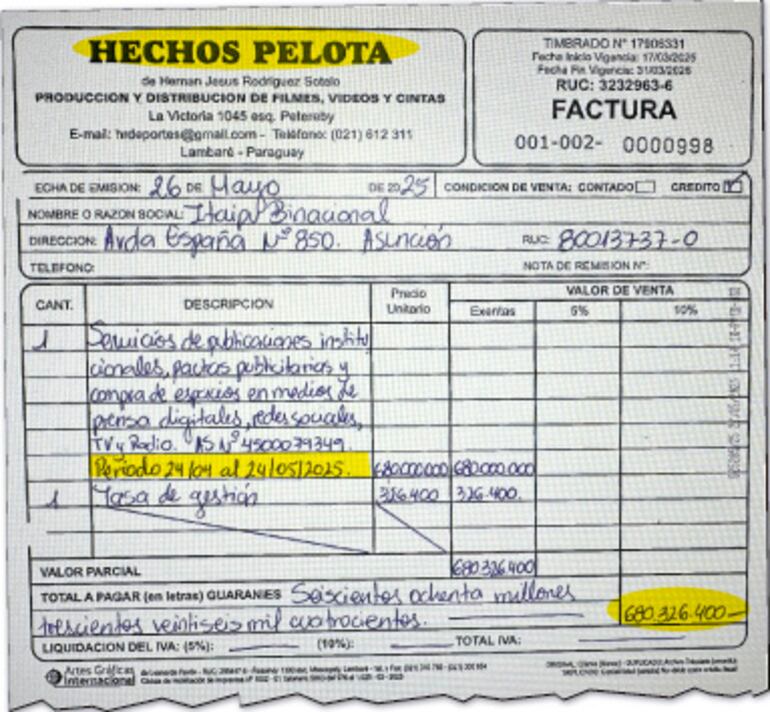 HECHOS PELOTA
de Hernan Jesus Rodriguez Sotelo
PRODUCCION Y DISTRIBUCION DE FILMES, VIDEOS Y CINTAS
La Victoria 1045 esq. Petereby
E-mail: hrdeportes@gmail.com - Teléfono: (021) 612 311
Lambaré - Paraguay
TIMBRADO N° 17906331
Fecha Inicio Vigencia: 17/03/2025
Fecha Fin Vigencia: 31/03/2026
RUC: 3232963-6
FACTURA
001-002- 0000998
ECHA DE EMISION: 26 DE Mayo DE 2025 CONDICION DE VENTA: CONTADO CREDITO
NOMBRE O RAZON SOCIAL: Itaipú Binacional
DIRECCION: Avda España N° 850. Asunción RUC: 80013737-0
TELEFONO: NOTA DE REMISION N°:
CANT. DESCRIPCION Precio Unitario VALOR DE VENTA
Exentas 5% 10%
1 Servicios de publicaciones institu
cionales, pautas publicitarias y
compra de espacios en medios de
prensa digitales, redes sociales,
TV y Radio. AS N° 4500079349.
Periodo 24/04 al 24/05/2025. 680.000.000 680.000.000
1 Tasa de gestión 326.400 326.400.
VALOR PARCIAL 680.326.400
TOTAL A PAGAR (en letras) GUARANIES Seiscientos ochenta millones
trescientos veintiseis mil cuatrocientos. 680.326.400
LIQUIDACION DEL IVA: (5%): (10%): TOTAL IVA:
Artes Gráficas
Internacional